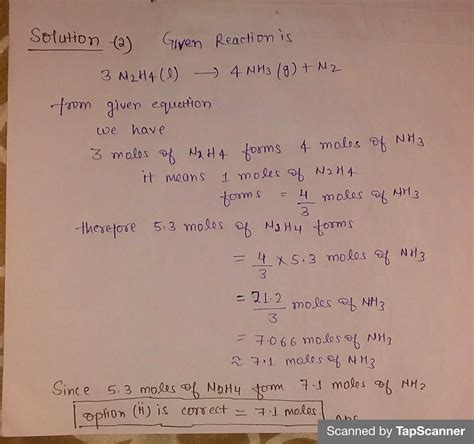 Solution -(2) Given Reaction is
3 N2H4(l) → 4 NH3(g) + N2
from given equation
we have
3 moles of N2H4 forms 4 moles of NH3
it means 1 moles of N2H4
forms = 4/3 moles of NH3
therefore 5.3 moles of N2H4 forms
= 4/3 × 5.3 moles of NH3
= 21.2/3 moles of NH3
= 7.066 moles of NH3
≈ 7.1 moles of NH3
Since 5.3 moles of N2H4 form 7.1 moles of NH3
option (ii) is correct = 7.1 moles Ans
Scanned by TapScanner